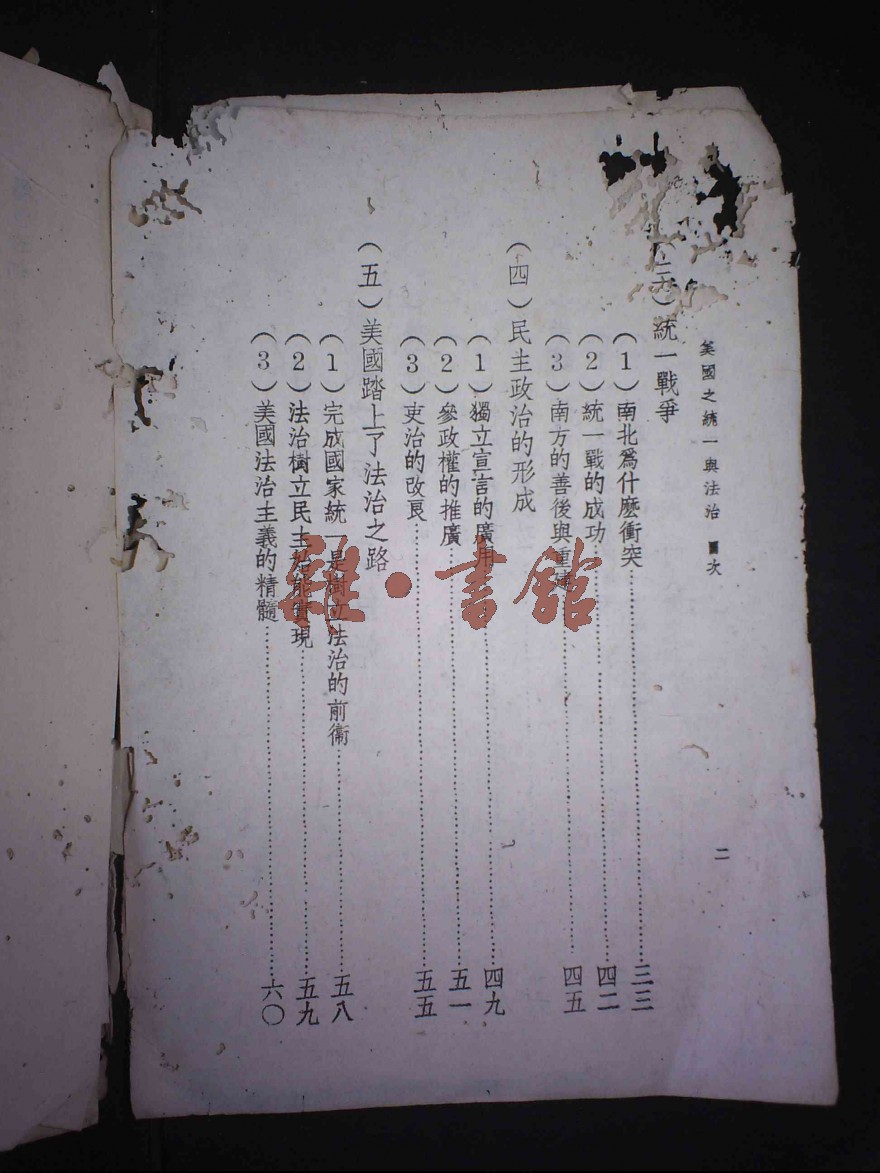 美國之統一與法治 目次
二
（三）統一戰爭
（1）南北爲什麽衝突…………三三
（2）統一戰的成功…………四二
（3）南方的善後與重建…………四五
（四）民主政治的形成
（1）獨立宣言的廣用…………四九
（2）參政權的推廣…………五一
（3）吏治的改良…………五五
（五）美國踏上了法治之路
（1）完成國家統一是樹立法治的前衞…………五八
（2）法治樹立民主始能實現…………五九
（3）美國法治主義的精髓…………六〇
雜·書館